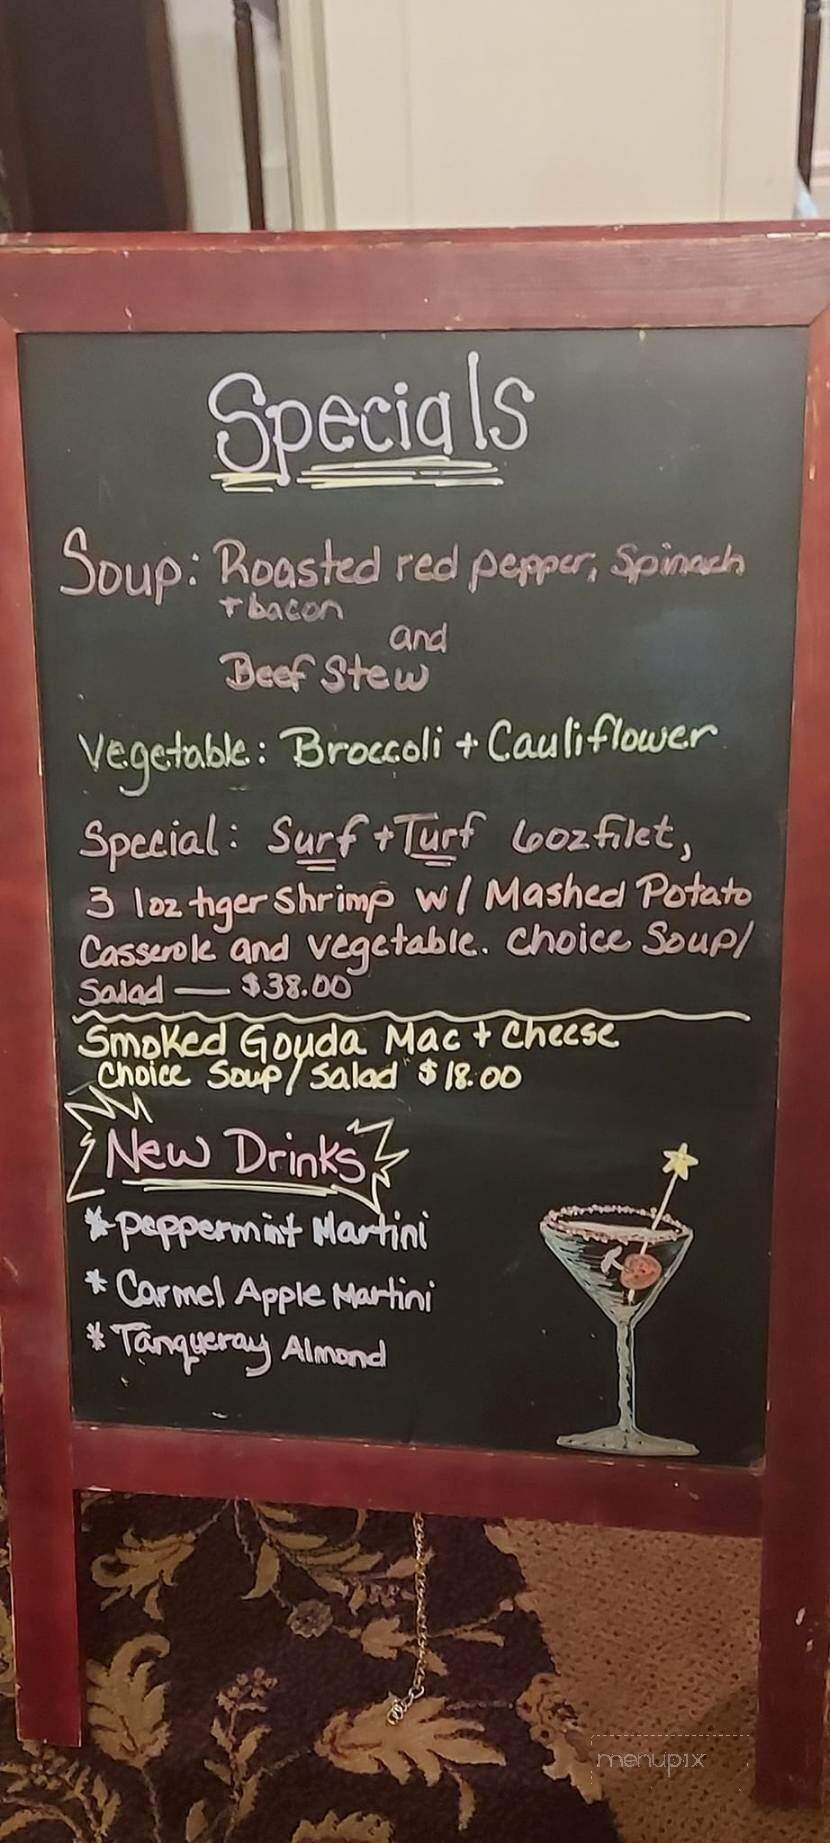 Specials
Soup: Roasted red pepper, Spinach
+ bacon
and
Beef Stew
Vegetable: Broccoli + Cauliflower
Special: Surf + Turf 6oz filet,
3 1oz tiger Shrimp w/ Mashed Potato
Casserole and vegetable. choice Soup/
Salad — $38.00
Smoked Gouda Mac + Cheese
Choice Soup/Salad $18.00
New Drinks
* Peppermint Martini
* Carmel Apple Martini
* Tanqueray Almond
menupix